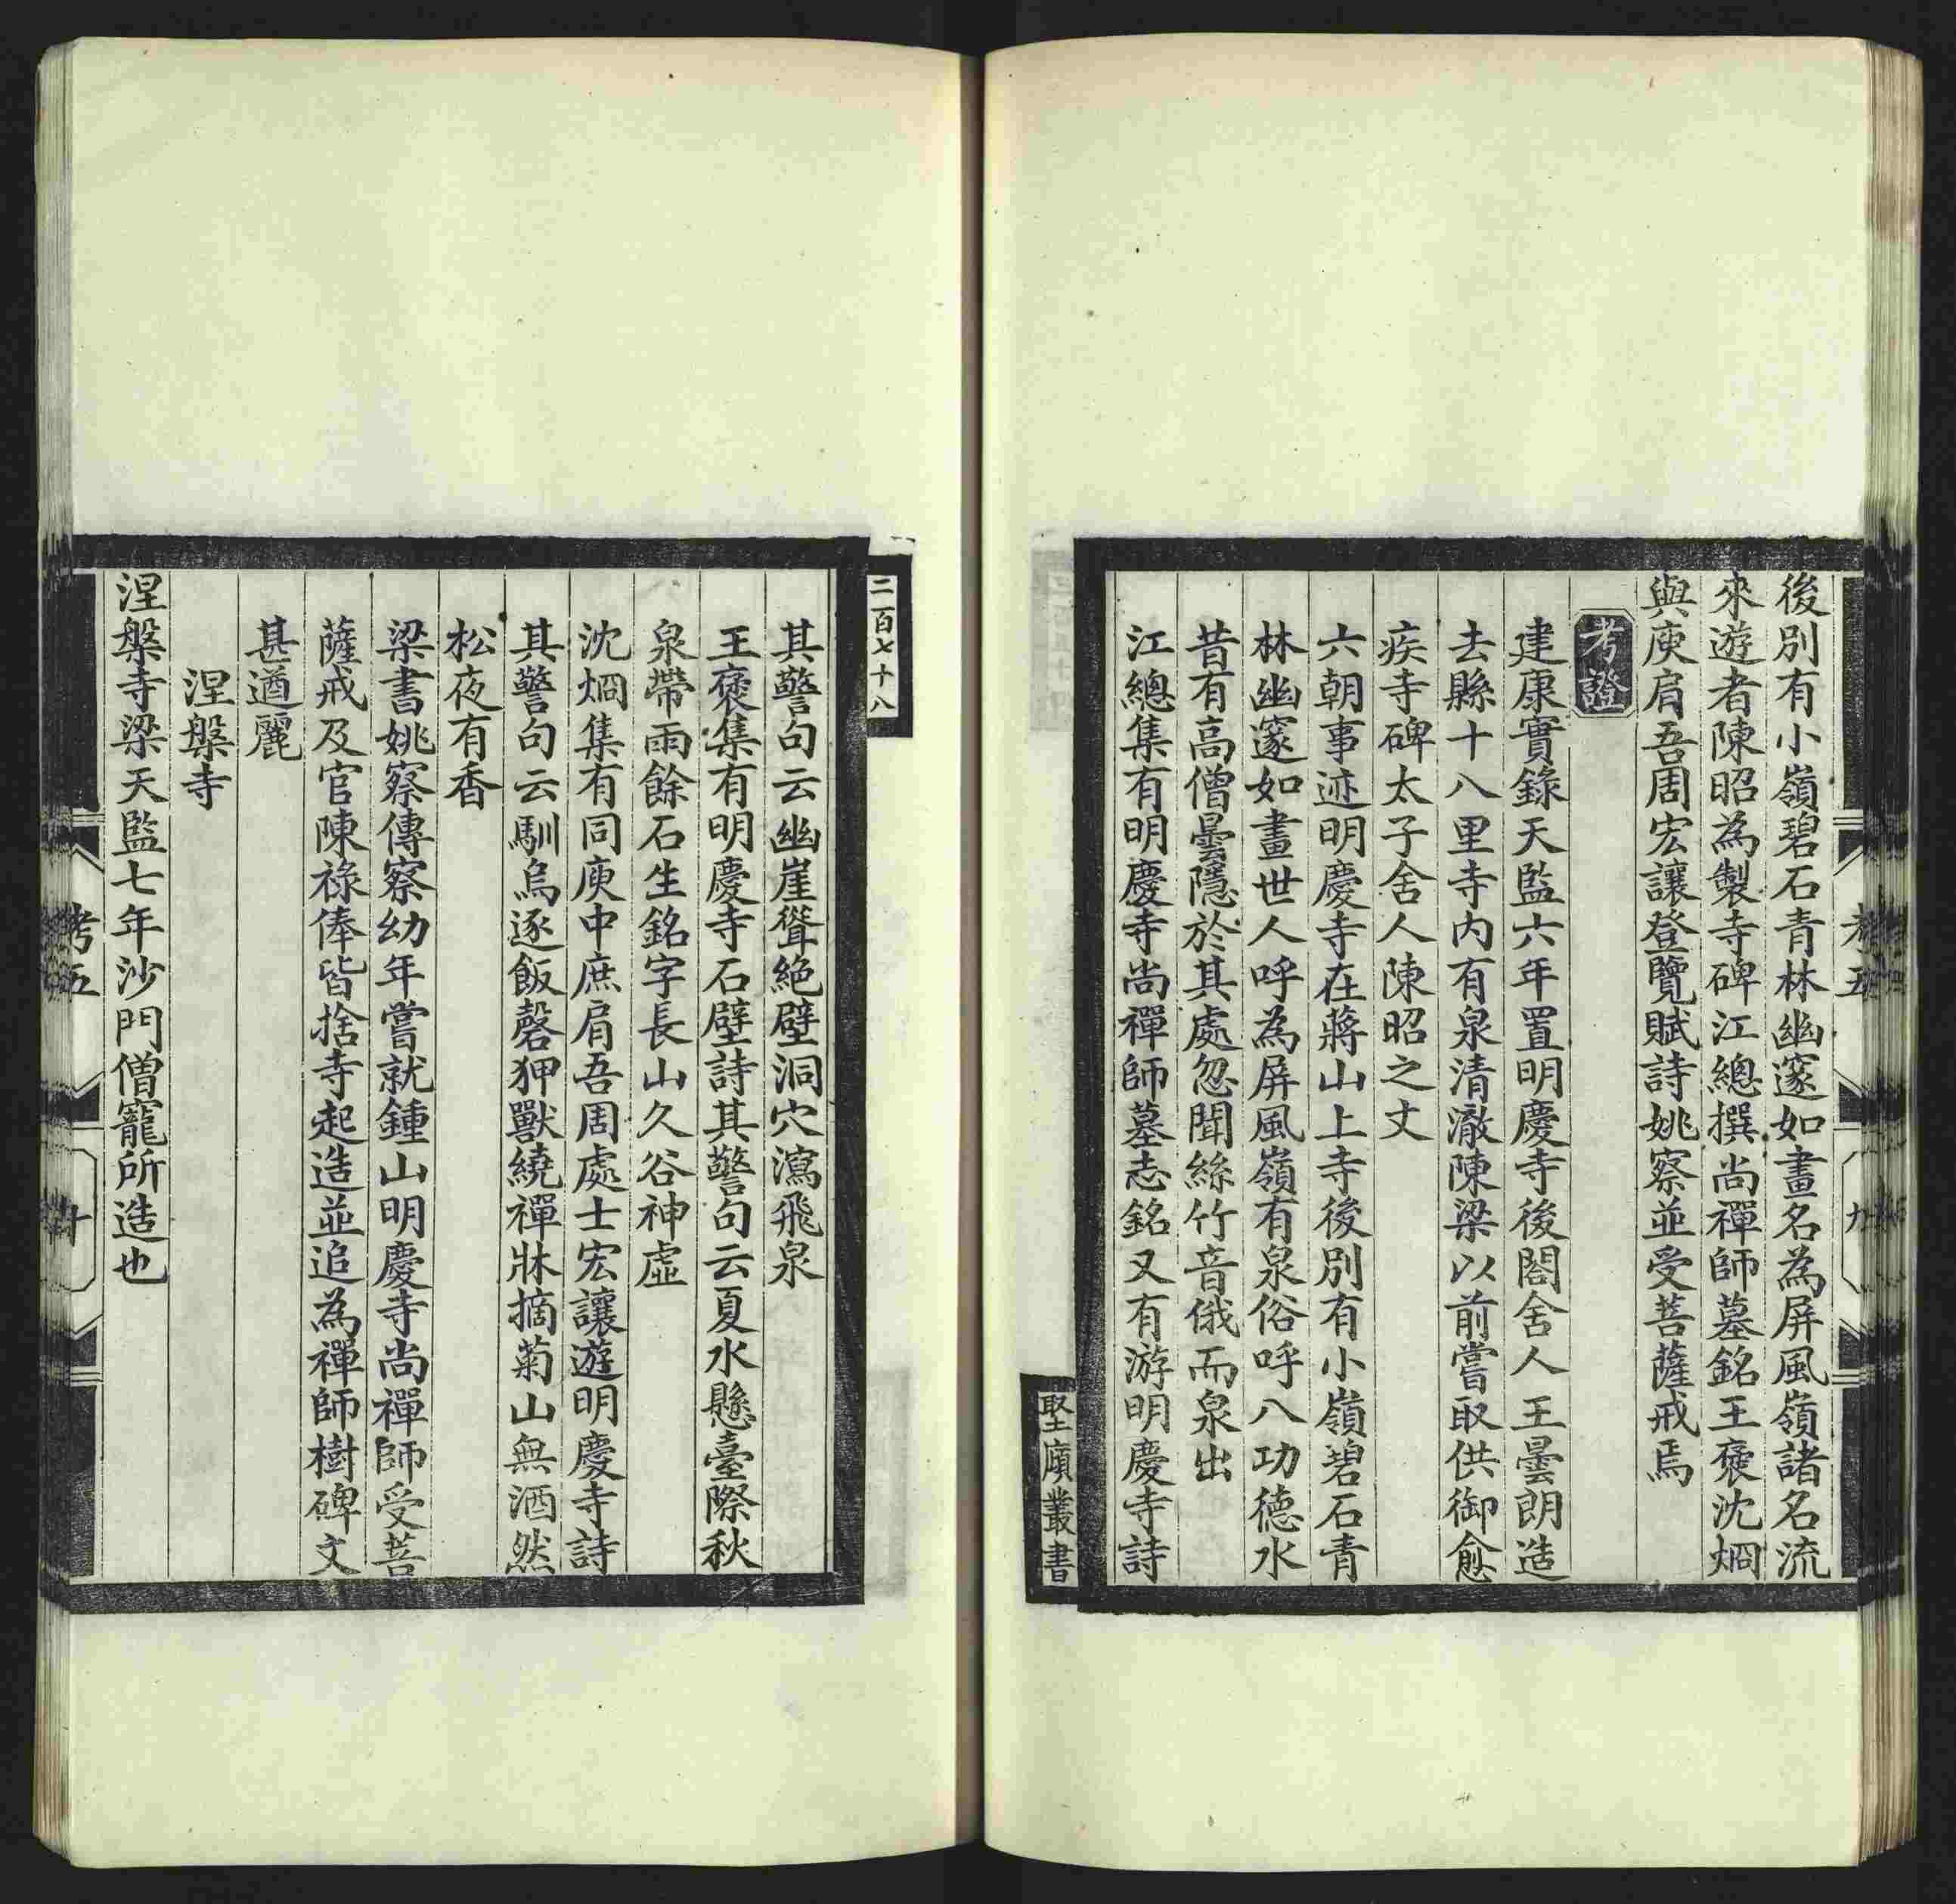 後別有小嶺碧石青林幽邃如畫名為屏風嶺諸名流
來遊者陳昭為製寺碑江總撰尚禪師墓銘王襃沈烱
與庾肩吾周宏讓登覽賦詩姚察並受菩薩戒焉
考證
建康實錄天監六年置明慶寺後閤舍人王曇朗造
去縣十八里寺内有泉清澈陳梁以前嘗取供御愈
疾寺碑太子舍人陳昭之文
六朝事迹明慶寺在蔣山上寺後別有小嶺碧石青
林幽邃如畫世人呼為屏風嶺有泉俗呼八功德水
昔有高僧曇隱於其處忽聞絲竹音俄而泉出
江總集有明慶寺尚禪師墓志銘又有游明慶寺詩
考五
九
堅瓠叢書
二百七十八
其警句云幽崖聳絕壁洞穴瀉飛泉
王襃集有明慶寺石壁詩其警句云夏水懸臺際秋
泉帶雨餘石生銘字長山久谷神虛
沈烱集有同庾中庶肩吾周處士宏讓遊明慶寺詩
其警句云馴烏逐飯磬狎獸繞禪牀摘菊山無酒然
松夜有香
梁書姚察傳察幼年嘗就鍾山明慶寺尚禪師受菩
薩戒及官陳祿俸皆捨寺起造並追為禪師樹碑文
甚遒麗
涅槃寺
涅槃寺梁天監七年沙門僧寵所造也
考五
十